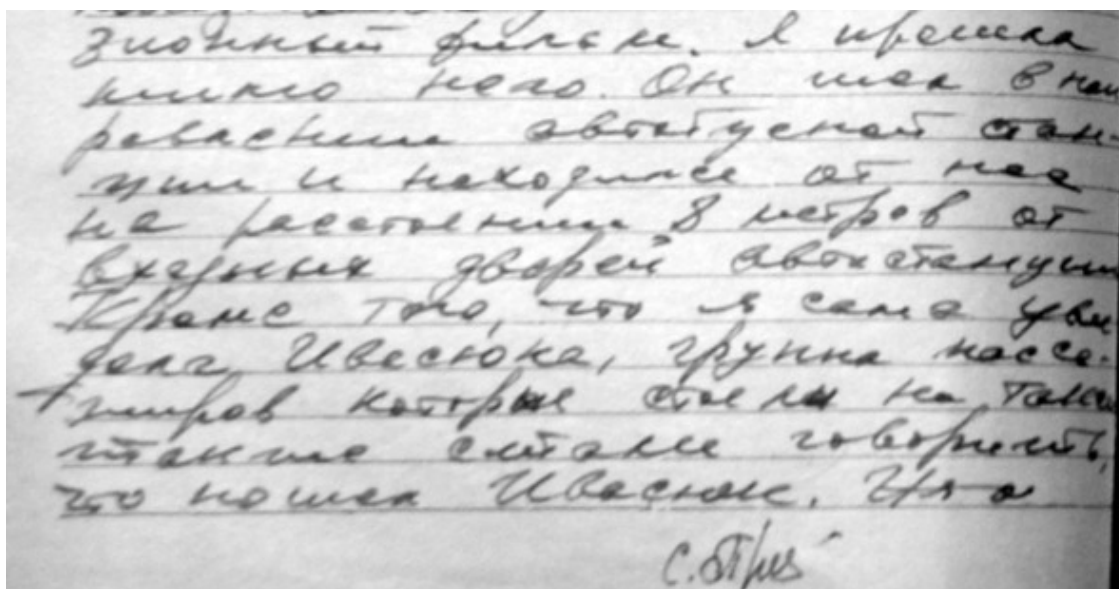 зионный фильм. Я прошла
мимо него. Он шел в нап
равлении автобусной стан-
ции и находился от нее
на расстоянии 8 метров от
входных дверей автостанции
Кроме того, что я сама уви
дела Ивасюка, группа пасса-
жиров которые стояли на такси
стоянке стали говорить,
что пошел Ивасюк. На